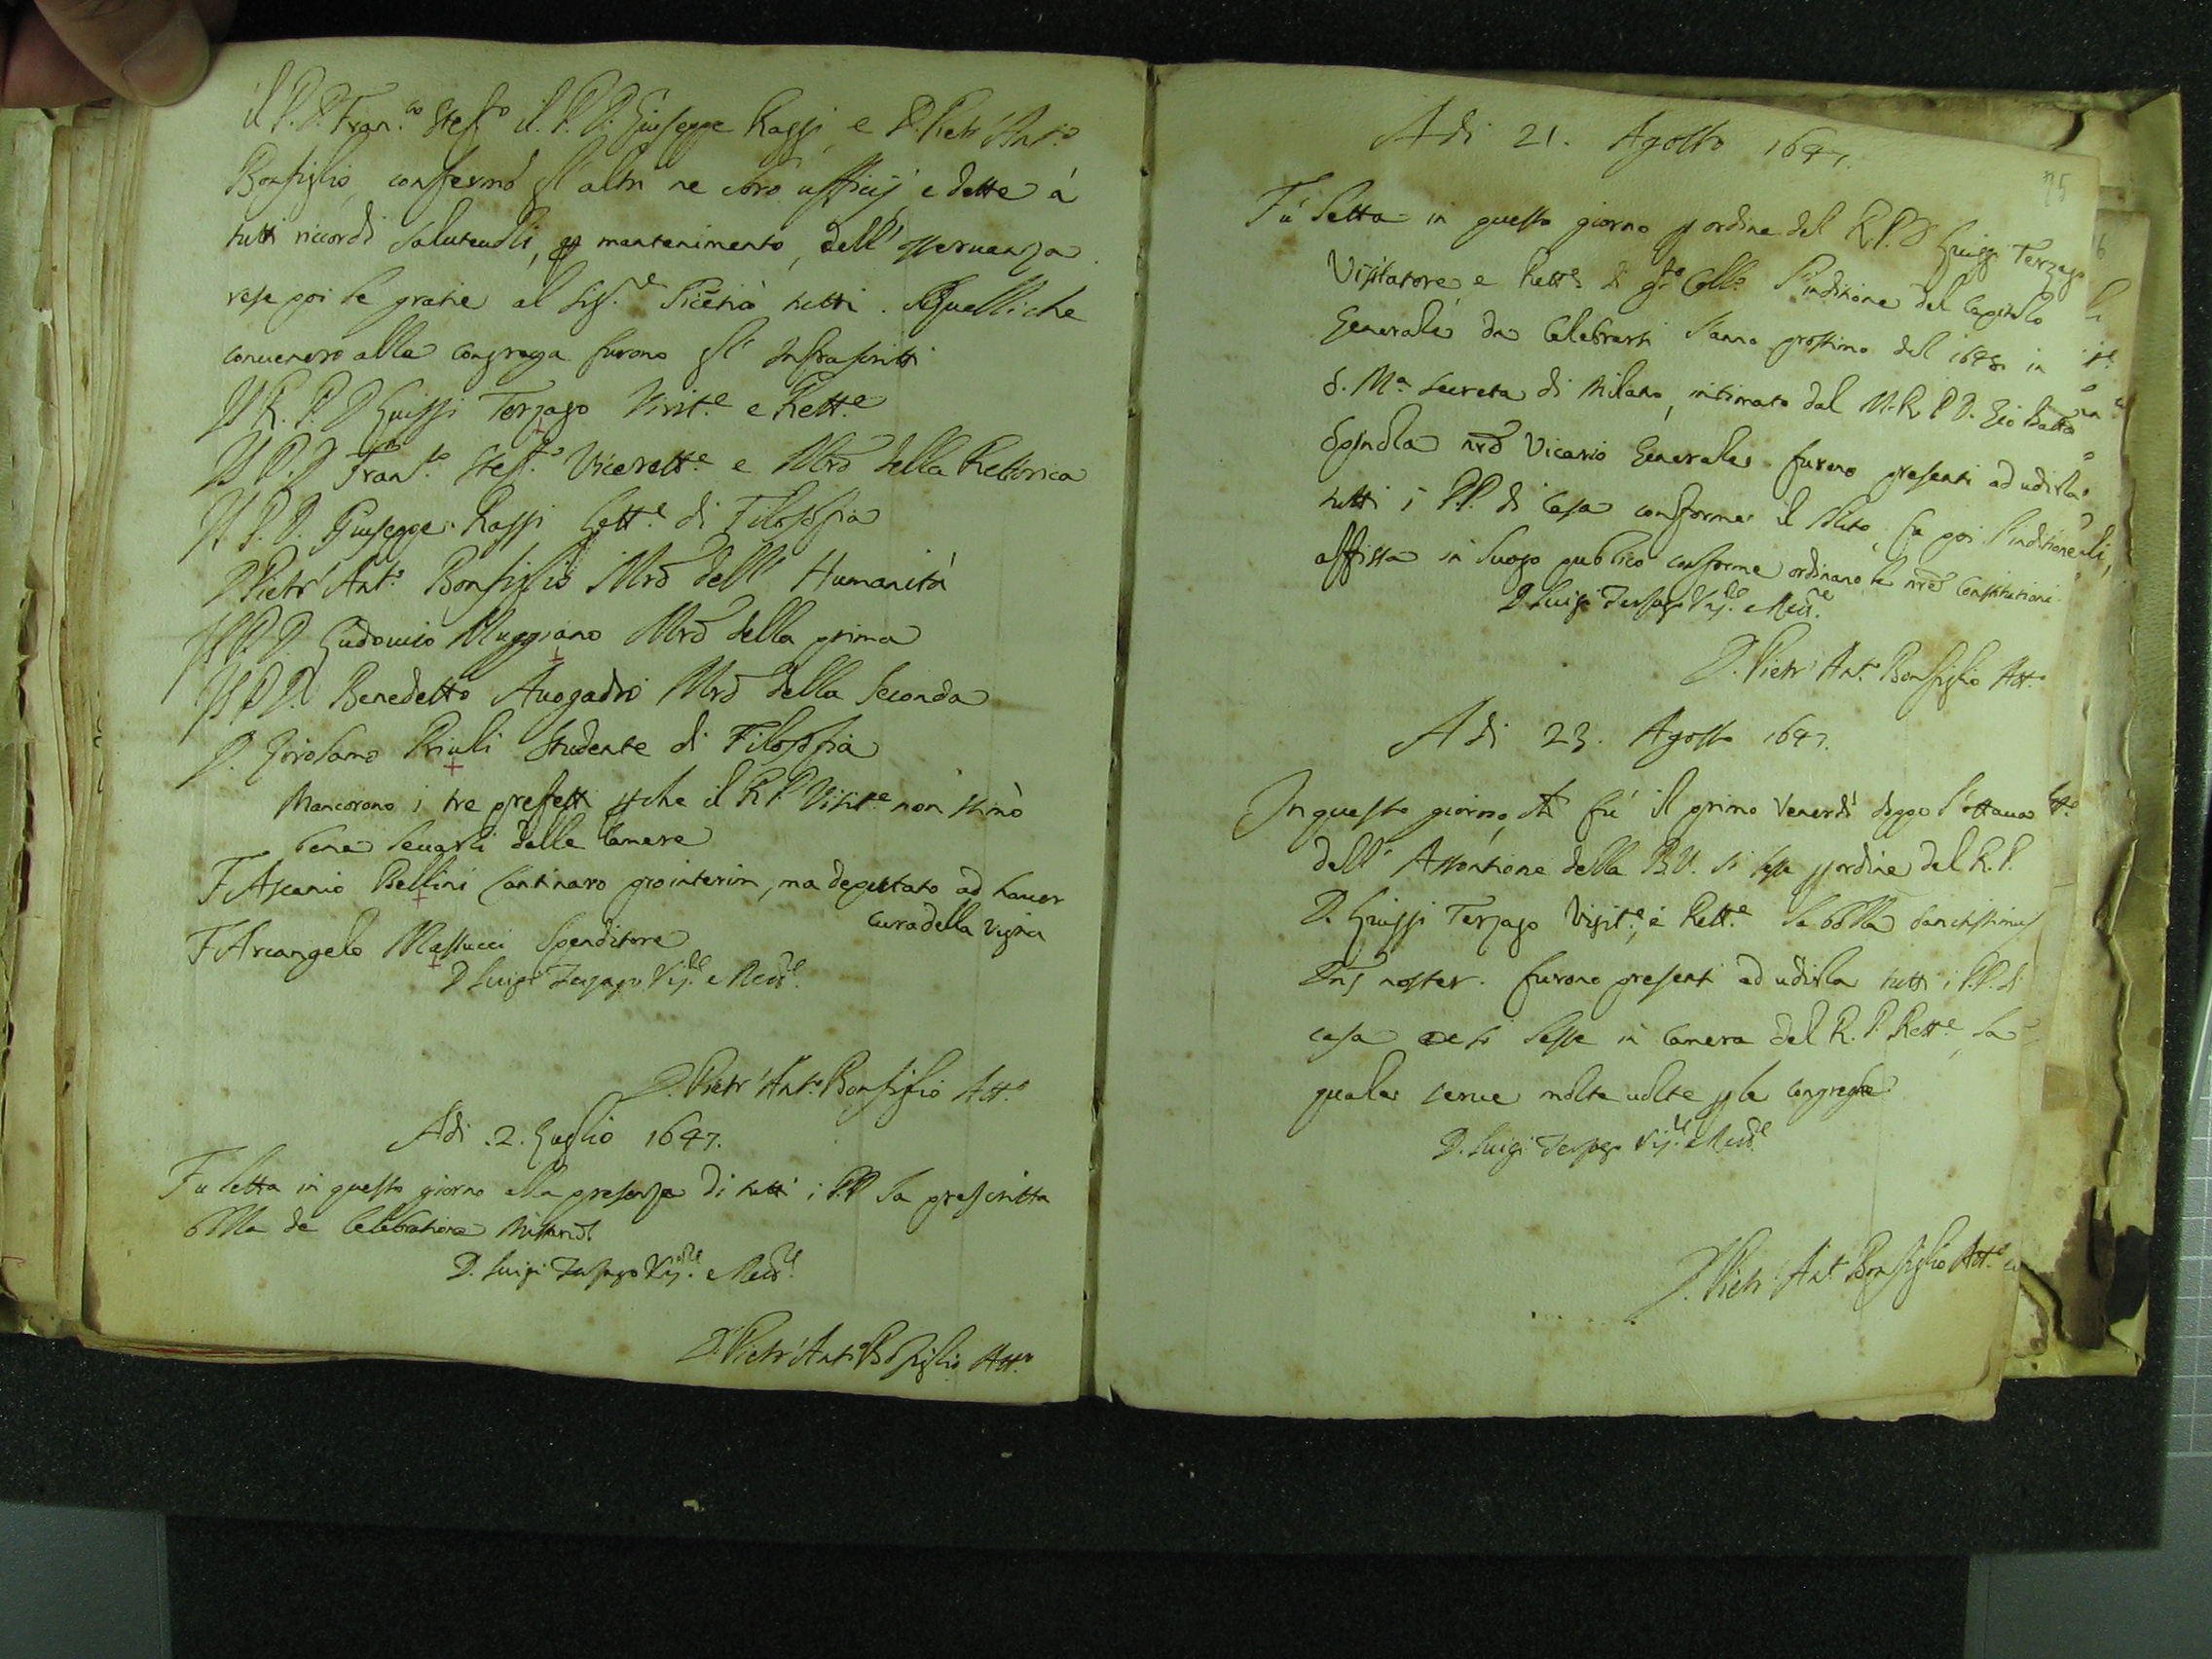 il P. D. Fran.co Stef.o il P. D. Giuseppe Rassi, e D. Pietr' Ant.o
Bonfiglio, confermò gl' altri ne loro ufficij, e dette à
tutti ricordi salutevoli, mantenimento, dell' osservanza
rese poi le gratie al Sig.e licentiò tutti. Quelli che
convenero alla congrega furono gl' Infrascritti
Il R. P. D. Luiggi Terzago Visit.e e Rett.e
Il P. D. Fran.co Stef.o Vicerett.e e Mrõ della Rettorica
Il P. D. Giuseppe Rassi Lett.e di Filosofia
D. Pietr' Ant.o Bonfiglio Mrõ dell' Humanità
Il P. D. Ludovico Muggiano Mrõ della prima
Il P. D. Benedetto Avogadro Mrõ della Seconda
D. Girolamo Priuli studente di Filosofia
Mancorono i tre prefetti pche il R. P. Visit.e non stimò
bene levarli dalle Camere
F. Ascanio Bellini Cantinaro prointerim, ma deputato ad haver
cura della vigna
F. Arcangelo Massucci Spenditore
D. Luigi Terzago Vis.re e Rett.re
D. Pietr' Ant.o Bonfiglio Att.o
Adi .2. Luglio 1647.
Fu letta in questo giorno alla presenza di tutti i PP. la prescritta
bolla de Celebratione Missarũ
D. Luigi Terzago Vis.re e Rett.re
D. Pietr' Ant.o Bõfiglio Att.o
75
Adi 21. Agosto 1647.
Fù letta in questo giorno p ordine del R. P. D. Luiggi Terzago
Visitatore e Rett.e di q.sto Coll.o l'inditione del Capitolo
Generale da Celebrarsi l'anno prossimo del 1648 in
S. M.a Secreta di Milano, intimato dal M. R. P. D. Gio Batta
Spinola nrõ Vicario Generale. furono presenti ad udirla
tutti i PP. di Casa conforme il solito, fu poi l'inditione
affissa in luogo publico conforme ordinano le nrẽ Constitutioni.
D. Luigi Terzago Vis.re e Rett.re
D. Pietr' Ant.o Bonfiglio Att.o
Adi 23. Agosto 1647.
In questo giorno, che fù il primo Venerdì doppo l'ottava
dell' Assontione della B.V. si lesse p ordine del R. P.
D. Luiggi Terzago Visit.e, e Rett.e la bolla Sanctissimus
Dñs noster. furono presenti ad udirla tutti i PP. di
casa e si lesse in Camera del R. P. Rett.e, la
quale serve molte volte p le congreghe
D. Luigi Terzago Vis.re e Rett.re
D. Pietr' Ant.o Bonfiglio Att.o